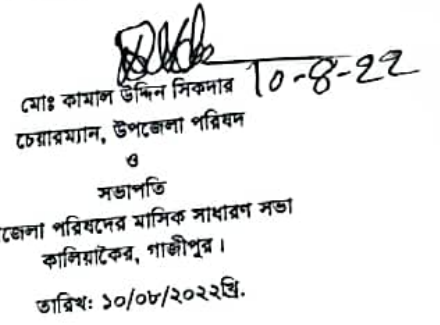 10-8-22
মোঃ কামাল উদ্দিন সিকদার
চেয়ারম্যান, উপজেলা পরিষদ
ও
সভাপতি
জেলা পরিষদের মাসিক সাধারণ সভা
কালিয়াকৈর, গাজীপুর।
তারিখঃ ১০/০৮/২০২২খ্রি.